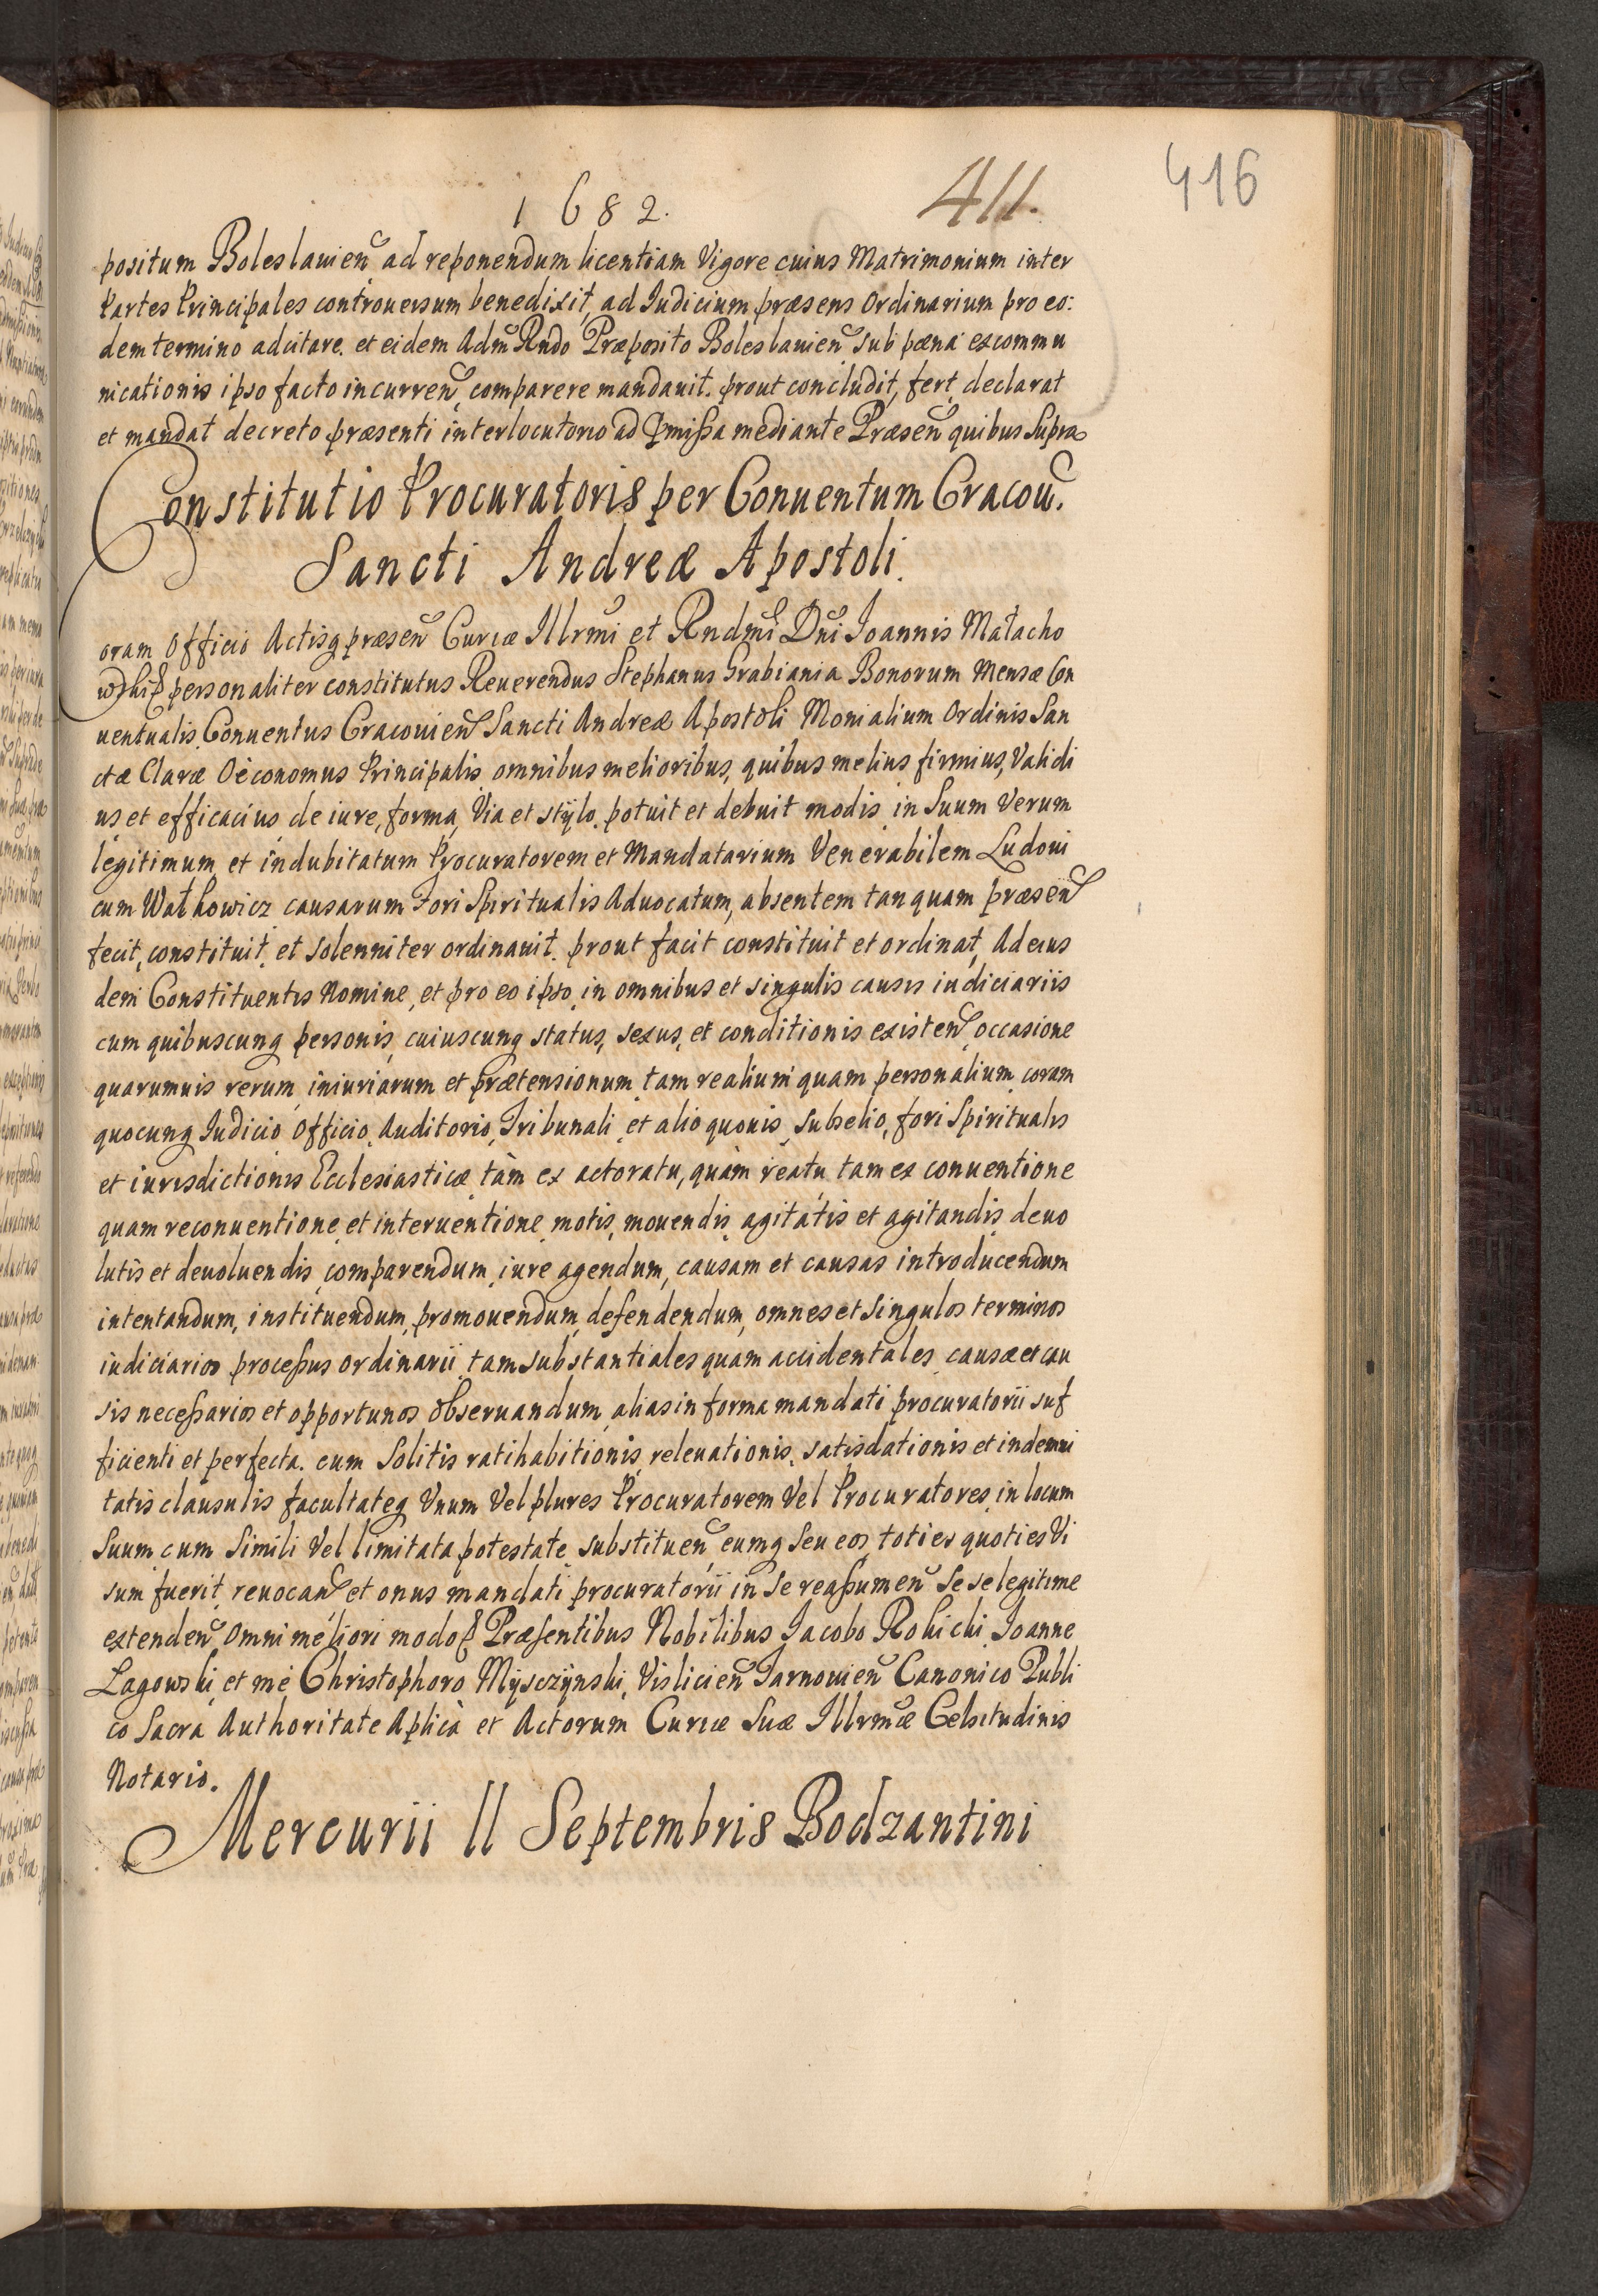 1682.
411.
416
positum Boleslauien ad reponendum licentiam Vigore cuius Matrimonium inter
Partes Principales controuersum benedixit, ad Iudicium præsens Ordinarium pro eo:
dem termino adcitare. et eidem Adm Rndo Præposito Boleslauien sub pœna excommu
nicationis ipso facto incurren, comparere mandauit. prout concludit, fert, declarat
et mandat decreto præsenti interlocutorio ad Pmissa mediante Præsen quibus Supra
Constitutio Procuratoris per Conuentum Cracou.
Sancti Andreæ Apostoli.
oram Officio Actisq præsen Curiæ Illrmi et Rndmi Dni Ioannis Małacho
wski personaliter constitutus Reuerendus Stephanus Grabiania Bonorum Mensæ Con
uentualis Conuentus Cracouien Sancti Andreæ Apostoli Monialium Ordinis San
ctæ Claræ Oeconomus Principalis omnibus melioribus, quibus melius firmius, Validi
us et efficacius de iure, forma, Via et stÿlo potuit et debuit modis, in Suum Verum
legitimum et indubitatum Procuratorem et Mandatarium Venerabilem Ludoui
cum Wałkowicz causarum Fori Spiritualis Aduocatum, absentem tanquam præsen
fecit, constituit, et solenniter ordinauit. prout facit constituit et ordinat, Ad eius
dem Constituentis Nomine, et pro eo ipso, in omnibus et singulis causis iudiciariis
cum quibuscunq personis, cuiuscunq status, sexus, et conditionis existen, occasione
quarumuis rerum, iniuriarum et prætensionum tam realium quam personalium coram
quocunq Iudicio Officio, Auditorio, Tribunali et alio quouis subselio, fori Spiritualis
et iurisdictionis Ecclesiasticæ tàm ex actoratu, quàm reatu, tam ex conuentione
quam reconuentione et interuentione motis, mouendis, agitatis et agitandis, deuo
lutis et deuoluendis, comparendum, iure agendum, causam et causas introducendum
intentandum, instituendum, promouendum, defendendum, omnes et singulos terminos
iudiciarios processus ordinarii tam substantiales quam accidentales causæ et cau
sis necessarios et opportunos obseruandum, alias in forma mandati procuratorii suf
ficienti et perfecta. cum Solitis ratihabitionis, releuationis, satisdationis et indemni
tatis clausulis facultateq Vnum Vel plures Procuratorem Vel Procuratores, in locum
Suum cum Simili Vel limitata potestate substituen, eumq seu eos, toties quoties Vi
sum fuerit, reuocan et onus mandati procuratorii in se reassumen se se legitime
extenden Omni meliori modo Præsentibus Nobilibus Jacobo Rokicki Ioanne
Łagowski et me Christophoro Mÿsczÿnski, Vislicien Tarnouien Canonico Publi
co Sacra Authoritate Aplica et Actorum Curiæ Suæ Illrmæ Celsitudinis
Notario.
Mercurii 11 Septembris Bodzantini